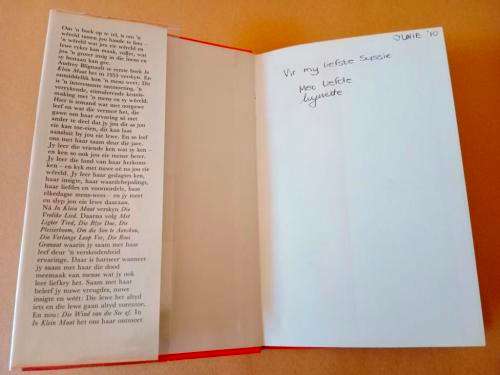 Om 'n boek op te tel, is om 'n
wêreld tussen jou hande te hou –
'n wêreld wat jou eie wêreld en
lewe ryker kan maak, voller, wat
jou 'n groter insig in die mens en
sy bestaan kan gee.
Audrey Blignault se eerste boek In
Klein Maat het in 1955 verskyn. En
onmiddellik ken 'n mens weet: Dit
is 'n interessante ontmoeting, 'n
verrykende, stimulerende kennis-
making met 'n mens en sy wêreld.
Hier is iemand wat met oorgawe
leef en wat die vermoë het, die
gawe om haar ervaring só met
ander te deel dat jy jou dit as jou
eie kan toe-eien, dit kan laat
aansluit by jou eie lewe. En so leef
ons met haar saam deur die jare.
Jy leer die vriende ken wat sy ken –
en ken so ook jou eie mense beter.
Jy leer die land van haar herkoms
ken – en kyk met nuwe oë na jou eie
wêreld. Jy leer haar gedagtes ken,
haar insigte, haar waardebepalings,
haar liefdes en vooroordele, haar
elkedagse mens-wees – en jy meet
en slyp jou eie lewe daaraan.
Ná In Klein Maat verskyn Die
Vrolike Lied. Daarna volg Met
Ligter Tred, Die Blye Dae, Die
Plesierboom, Om die Son te Aanskou,
Die Verlange Loop Ver, Die Rooi
Granaat waarin jy saam met haar
leef deur 'n verskeidenheid
ervaringe. Daar is hartseer wanneer
jy saam met haar die dood
meemaak van mense wat jy ook
leer liefkry het. Saam met haar
beleef jy nuwe vreugdes, nuwe
insigte en wéét: Die lewe het altyd
iets en die lewe gaan altyd vorentoe.
En nou: Die Wind van die See af. In
In Klein Maat het ons haar ontmoet
JUNIE '10
Vir my liefste Sussie
Met Liefde